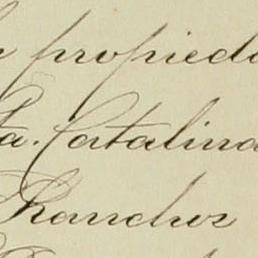 propieda
ta. Catalina
Ranchos